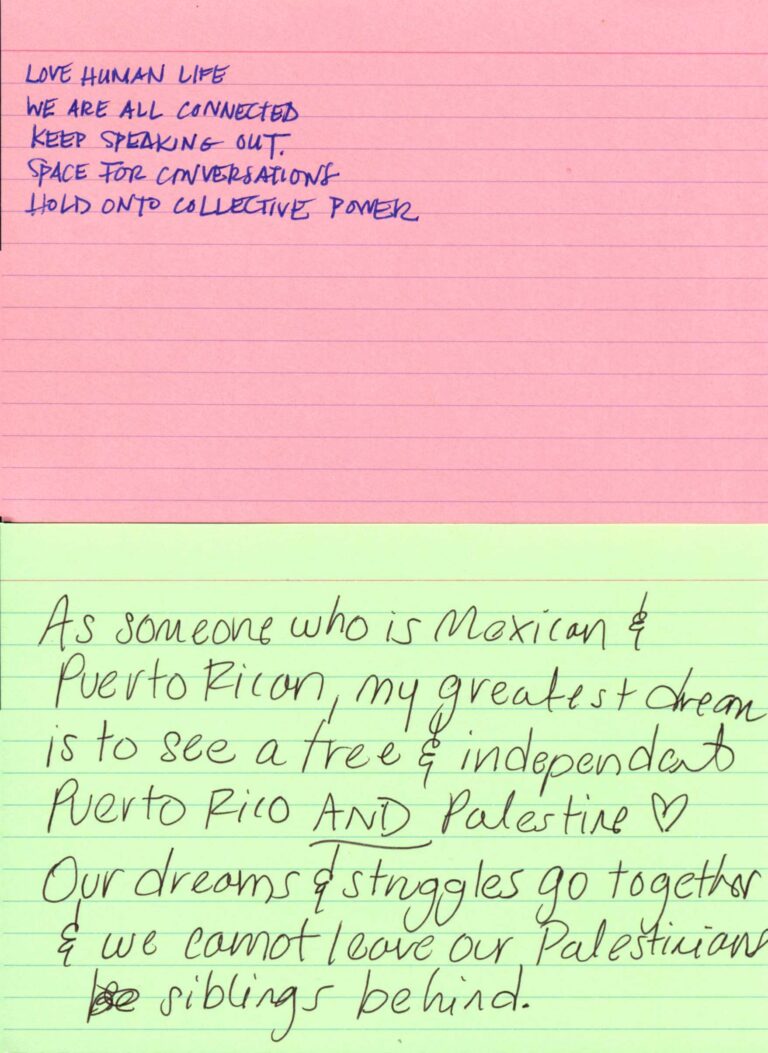 LOVE HUMAN LIFE
WE ARE ALL CONNECTED
KEEP SPEAKING OUT.
SPACE FOR CONVERSATIONS
HOLD ONTO COLLECTIVE POWER
As someone who is Mexican &
Puerto Rican, my greatest dream
is to see a free & independent
Puerto Rico AND Palestine ♡
Our dreams & struggles go together
& we cannot leave our Palestinians
siblings behind.